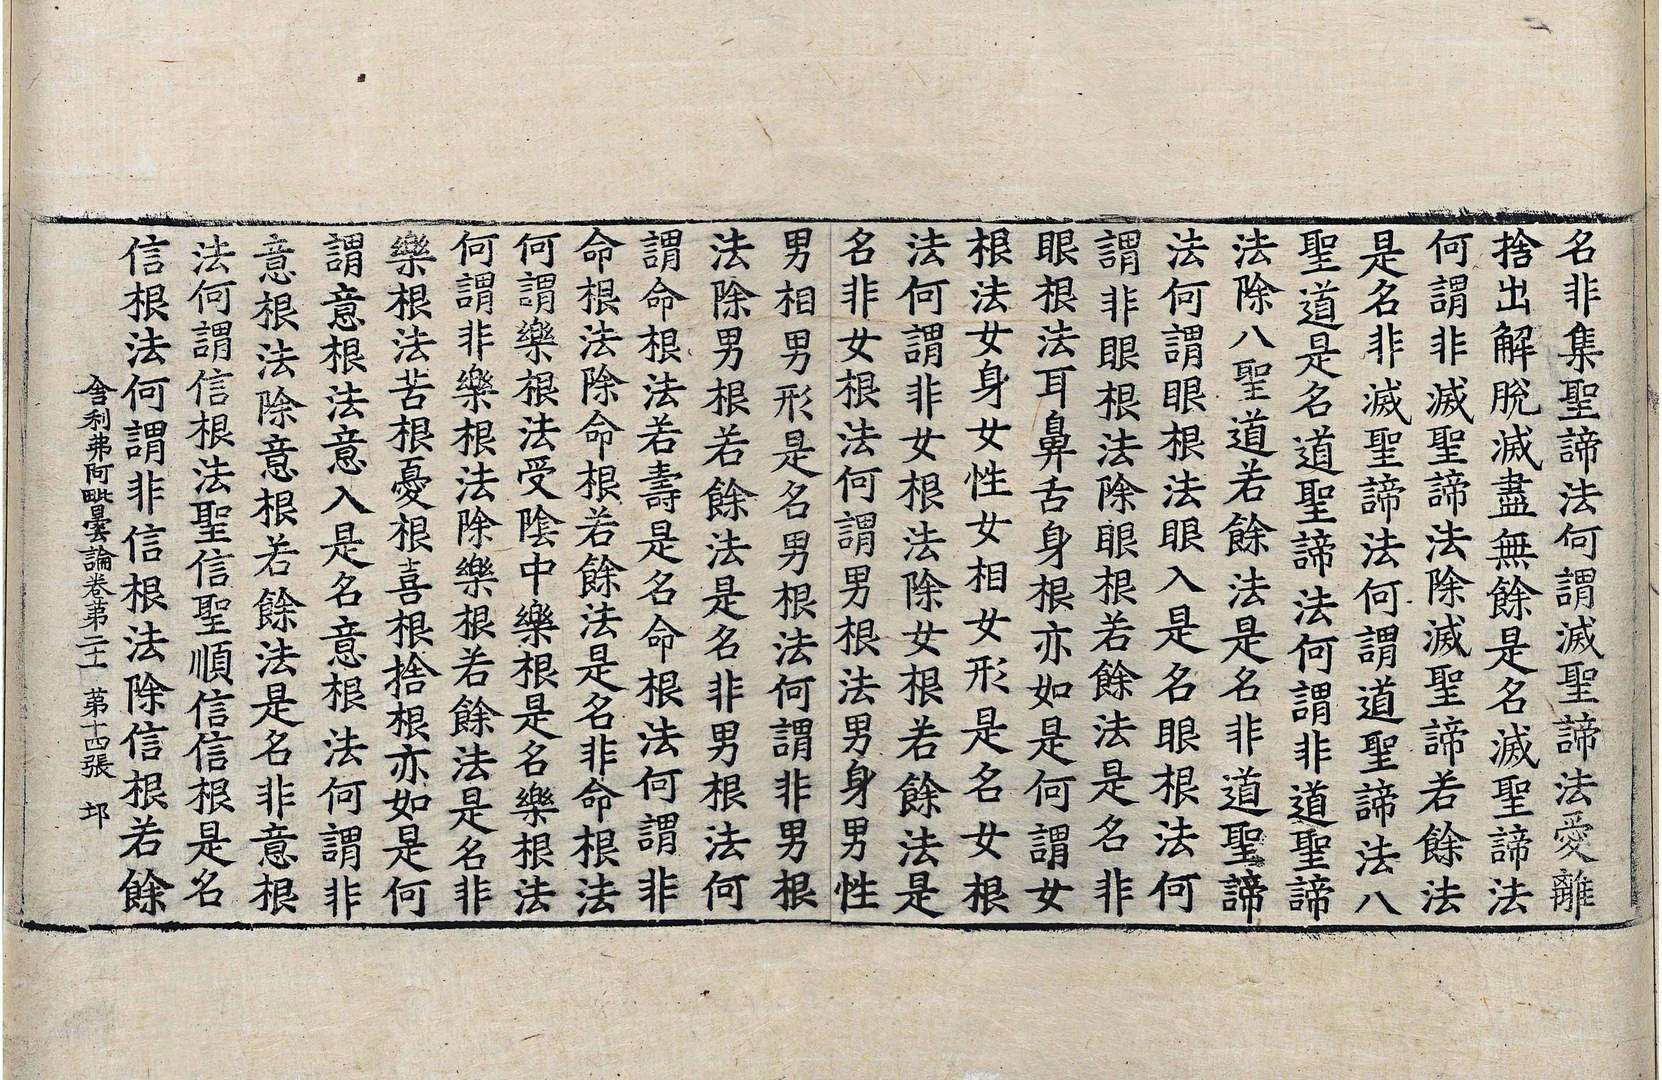 名非集聖諦法何謂滅聖諦法愛離
捨出解脫滅盡無餘是名滅聖諦法
何謂非滅聖諦法除滅聖諦若餘法
是名非滅聖諦法何謂道聖諦法八
聖道是名道聖諦法何謂非道聖諦
法除八聖道若餘法是名非道聖諦
法何謂眼根法眼入是名眼根法何
謂非眼根法除眼根若餘法是名非
眼根法耳鼻舌身根亦如是何謂女
根法女身女性女相女形是名女根
法何謂非女根法除女根若餘法是
名非女根法何謂男根法男身男性
男相男形是名男根法何謂非男根
法除男根若餘法是名非男根法何
謂命根法若壽是名命根法何謂非
命根法除命根若餘法是名非命根法
何謂樂根法受陰中樂根是名樂根法
何謂非樂根法除樂根若餘法是名非
樂根法苦根憂根喜根捨根亦如是何
謂意根法意入是名意根法何謂非
意根法除意根若餘法是名非意根
法何謂信根法聖信聖順信信根是名
信根法何謂非信根法除信根若餘
舍利弗阿毗曇論卷第二十一 第十四張 邛